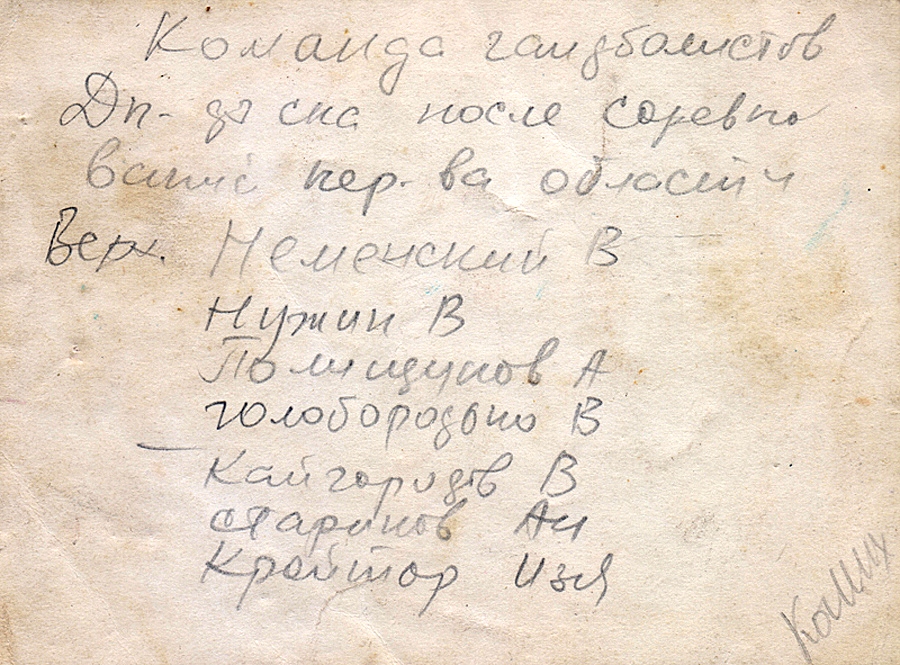 Команда гандболистов
Дп-дз ска после соревно
ваний пер-ва области
Верх. Неменский В
Нужин В
Полищуков А
Голобородько В
Кайгородов В
Стариков Ан
Крейтор Изя